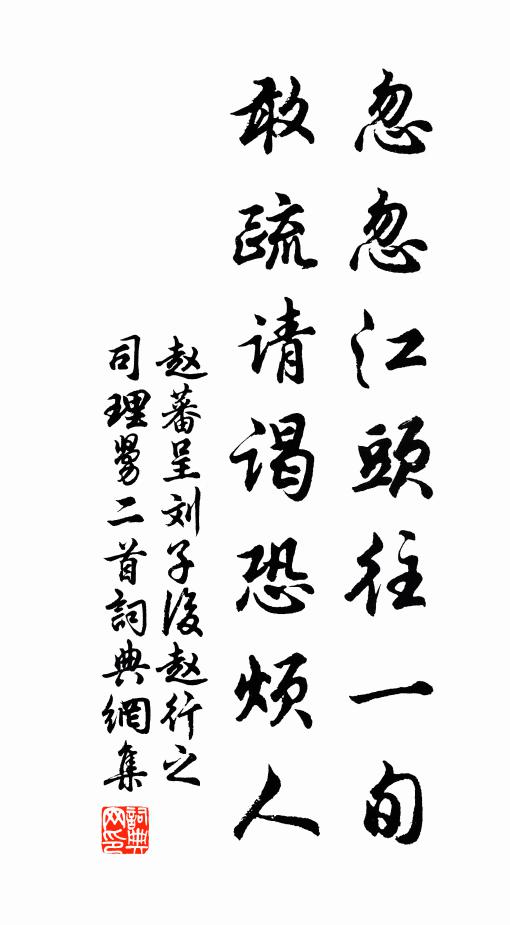 忽忽江頭往一旬
敢疏请谒恐烦人
赵蕃呈刘子後赵行之
司理男二首詞典網集
詞典
网印